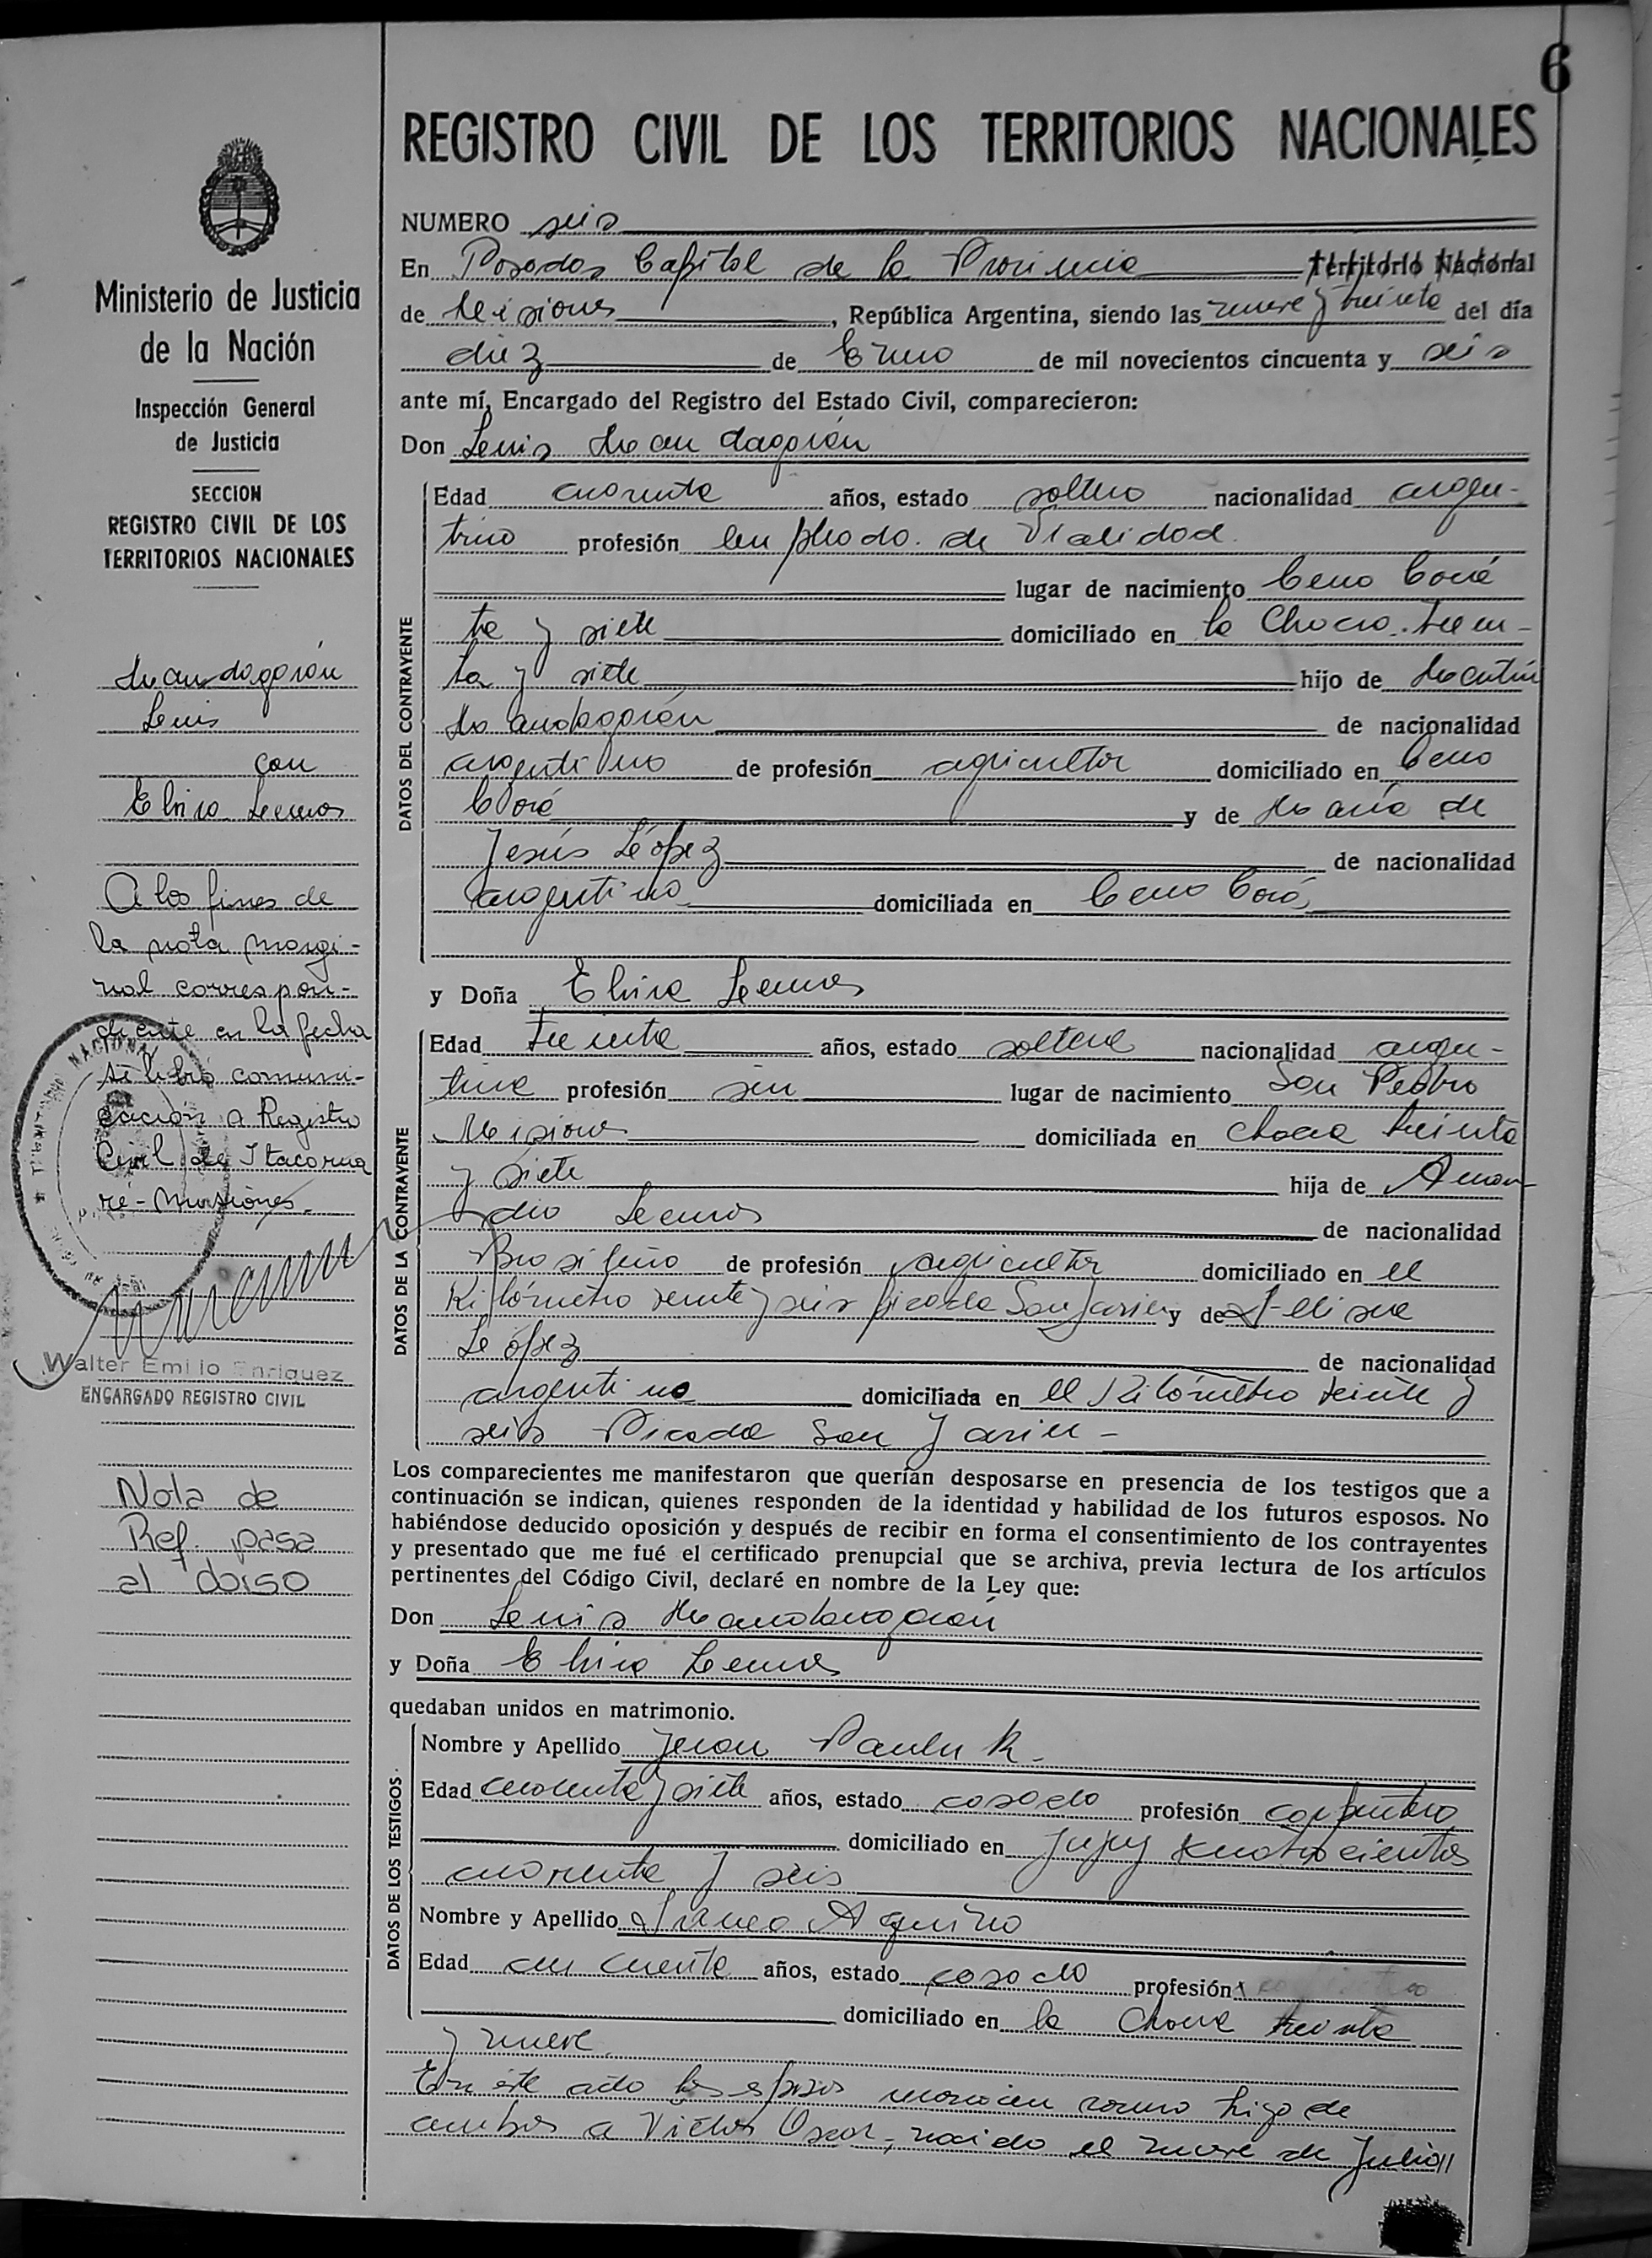 6
REGISTRO CIVIL DE LOS TERRITORIOS NACIONALES
Ministerio de Justicia
de la Nación
Inspección General
de Justicia
SECCION
REGISTRO CIVIL DE LOS
TERRITORIOS NACIONALES
Mandagorán
Luis
con
Elvira Lemos
A los fines de
la nota margi-
nal correspon-
diente en la fecha
se libró comuni-
cación a Registro
Civil de Itacorua
ré-Misiones.
Walter Emilio Enriquez
ENCARGADO REGISTRO CIVIL
Nota de
Ref. pasa
al dorso
NUMERO seis
En Posadas Capital de la Provincia territorio Nacional
de Misiones, República Argentina, siendo las nueve y treinta del día
diez de Enero de mil novecientos cincuenta y seis
ante mí, Encargado del Registro del Estado Civil, comparecieron:
Don Luis Mandagorán
DATOS DEL CONTRAYENTE
Edad cuarenta años, estado soltero nacionalidad argen-
tino profesión Empleado de Vialidad
lugar de nacimiento Cerro Corá
ta y siete domiciliado en la Chacra trein-
ta y siete hijo de Martín
Mandagorán de nacionalidad
argentino de profesión agricultor domiciliado en Cerro
Corá y de María de
Jesús López de nacionalidad
argentina domiciliada en Cerro Corá
y Doña Elvira Lemos
DATOS DE LA CONTRAYENTE
Edad treinta años, estado soltera nacionalidad argen-
tina profesión sin lugar de nacimiento San Pedro
Misiones domiciliada en chacra treinta
y siete hija de Aman
dio Lemos de nacionalidad
Brasileño de profesión agricultor domiciliado en el
Kilómetro veinte y seis picada San Javier y de
López de nacionalidad
argentina domiciliada en el Kilómetro veinte y
seis Picada San Javier -
Los comparecientes me manifestaron que querían desposarse en presencia de los testigos que a
continuación se indican, quienes responden de la identidad y habilidad de los futuros esposos. No
habiéndose deducido oposición y después de recibir en forma el consentimiento de los contrayentes
y presentado que me fué el certificado prenupcial que se archiva, previa lectura de los artículos
pertinentes del Código Civil, declaré en nombre de la Ley que:
Don Luis Mandagorán
y Doña Elvira Lemos
quedaban unidos en matrimonio.
DATOS DE LOS TESTIGOS
Nombre y Apellido Juan Paulu K.
Edad cuarenta y siete años, estado casado profesión carpintero
domiciliado en Jujuy kuatrocientos
cuarenta y seis
Nombre y Apellido Aquino
Edad cincuenta años, estado casado profesión
domiciliado en la Chacra treinta
y nueve.
En este acto los esposos reconocen como hijo de
ambos a Victor Oscar, nacido el nueve de Julio